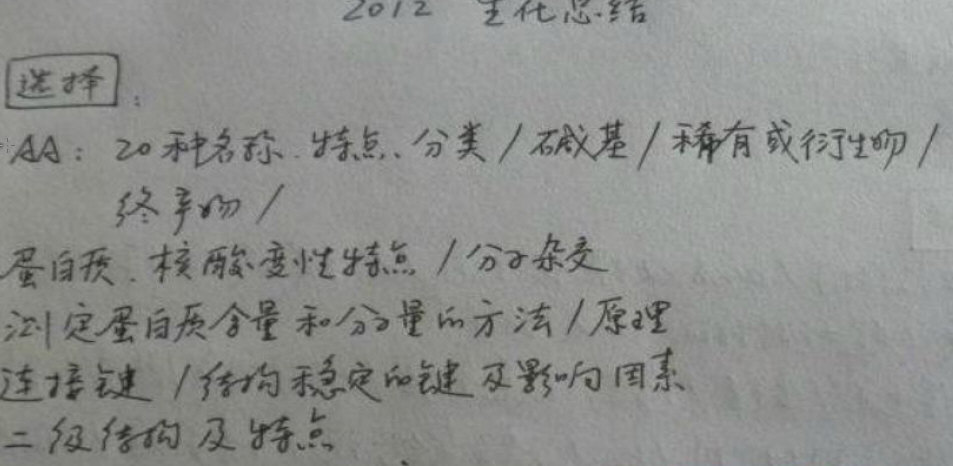 2012 生化总结
选择:
AA: 20种名称、特点、分类/碱基/稀有或衍生物/
终产物/
蛋白质、核酸变性特点/分子杂交
测定蛋白质含量和分子量的方法/原理
连接键/结构稳定的键及影响因素
二级结构及特点